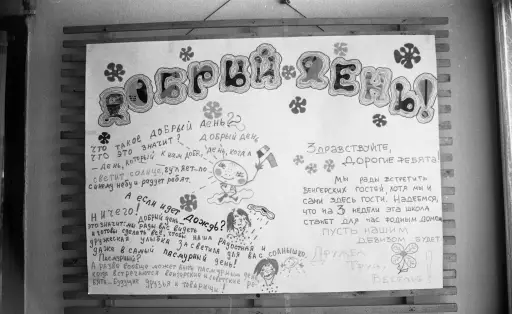 ДОБРЫЙ ДЕНЬ!
ЧТО ТАКОЕ ДОБРЫЙ ДЕНЬ?
ЧТО ЭТО ЗНАЧИТ? ДОБРЫЙ ДЕНЬ
– ДЕНЬ, КОТОРЫЙ К ВАМ ДОБР, ДЕНЬ, КОГДА
СВЕТИТ СОЛНЦЕ, ГУЛЯЕТ ПО
СИНЕМУ НЕБУ И РАДУЕТ РЕБЯТ.
А ЕСЛИ ИДЕТ ДОЖДЬ?
НИЧЕГО! ДОБРЫЙ ДЕНЬ –
ЭТО ЗНАЧИТ: МЫ РАДЫ ВАС ВИДЕТЬ
И ГОТОВЫ СДЕЛАТЬ ВСЁ, ЧТОБЫ НАША РАДОСТНАЯ И
ДРУЖЕСКАЯ УЛЫБКА ЗАСВЕТИЛА ДЛЯ ВАС
ДАЖЕ В САМЫЙ ПАСМУРНЫЙ ДЕНЬ!
ПАСМУРНЫЙ?
А РАЗВЕ ВООБЩЕ МОЖЕТ БЫТЬ ПАСМУРНЫМ ДЕНЬ,
КОГДА ВСТРЕЧАЮТСЯ ВЕНГЕРСКИЕ И СОВЕТСКИЕ РЕ-
БЯТА – БУДУЩИЕ ДРУЗЬЯ И ТОВАРИЩИ!
СОЛНЫШКО
ЗДРАВСТВУЙТЕ,
ДОРОГИЕ РЕБЯТА!
МЫ РАДЫ ВСТРЕТИТЬ
ВЕНГЕРСКИХ ГОСТЕЙ, ХОТЯ МЫ И
САМИ ЗДЕСЬ ГОСТИ. НАДЕЕМСЯ,
ЧТО НА 3 НЕДЕЛИ ЭТА ШКОЛА
СТАНЕТ ДЛЯ НАС РОДНЫМ ДОМОМ
ПУСТЬ НАШИМ
ДЕВИЗОМ БУДЕТ
ДРУЖБА,
ТРУД,
ВЕСЕЛЬЕ!